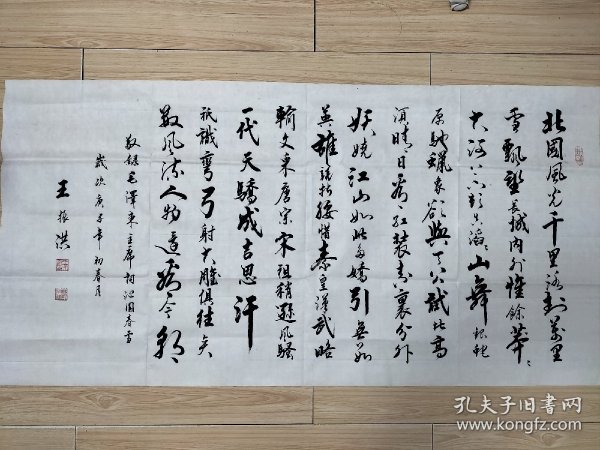 北國風光千里冰封萬里
雪飄望長城内外惟餘莽〻
大河上下頓失滔〻山舞銀蛇
原馳蠟象欲與天公試比高
須晴日看紅裝素裹分外
妖嬈江山如此多嬌引無數
英雄競折腰惜秦皇漢武略
輸文采唐宗宋祖稍遜風騷
一代天驕成吉思汗
祇識彎弓射大雕俱往矣
數風流人物還看今朝
敬錄毛澤東主席詞沁園春雪
歲次庚子年初春月
王振洪
孔夫子旧书网
www.kongfz.com